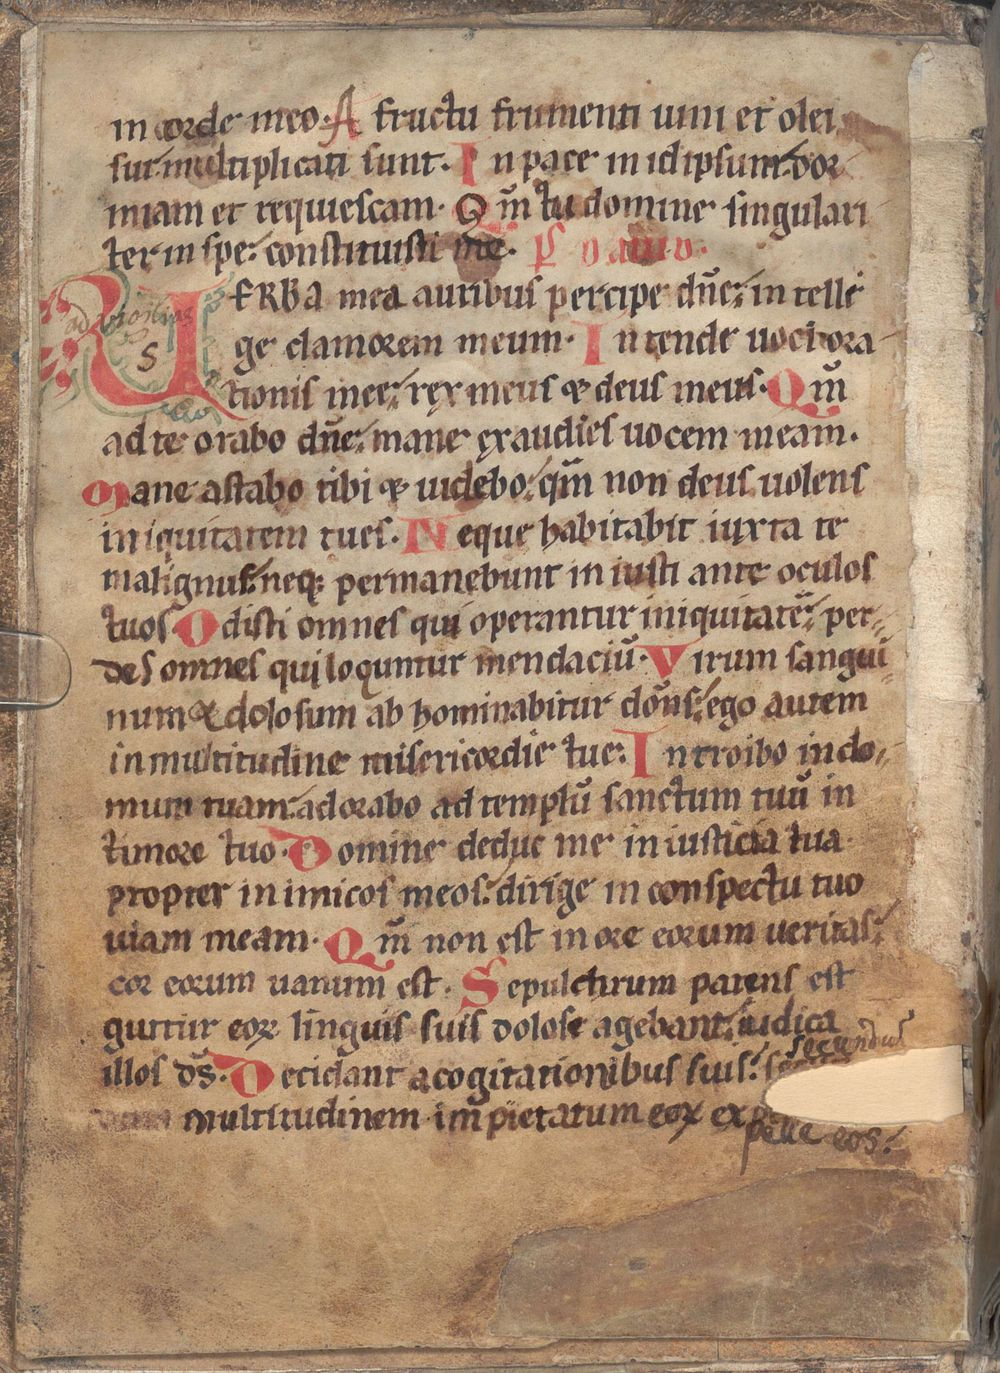 in corde meo· A fructu frumenti uini et olei
sui multiplicati sunt· In pace in idipsum dor
miam et requiescam· Qm̄ tu domine singulari
ter in spe constituisti me· Ps̄ dauid·
UERBA mea auribus percipe dn̄e intelle
ge clamorem meum· Intende uoci ora
tionis mee rex meus & deus meus· Qm̄
ad te orabo dn̄e mane exaudies uocem meam·
Mane astabo tibi & uidebo qm̄ non deus uolens
iniquitatem tu es· Neque habitabit iuxta te
malignus neq; permanebunt iniusti ante oculos
tuos Odisti omnes qui operantur iniquitatē per-
des omnes qui loquntur mendaciū· Virum sangui-
num & dolosum abhominabitur dōns ego autem
in multitudine misericordie tue· Introibo in do-
mum tuam adorabo ad templū sanctum tuū in
timore tuo· Domine deduc me in iusticia tua
propter inimicos meos dirige in conspectu tuo
uiam meam· Qm̄ non est in ore eorum ueritas
cor eorum uanum est· Sepulchrum patens est
guttur eoꝝ linguis suis dolose agebant iudica
illos ds̄· Decidant a cogitationibus suis secundum
multitudinem impietatum eoꝝ ex
pelle eos·